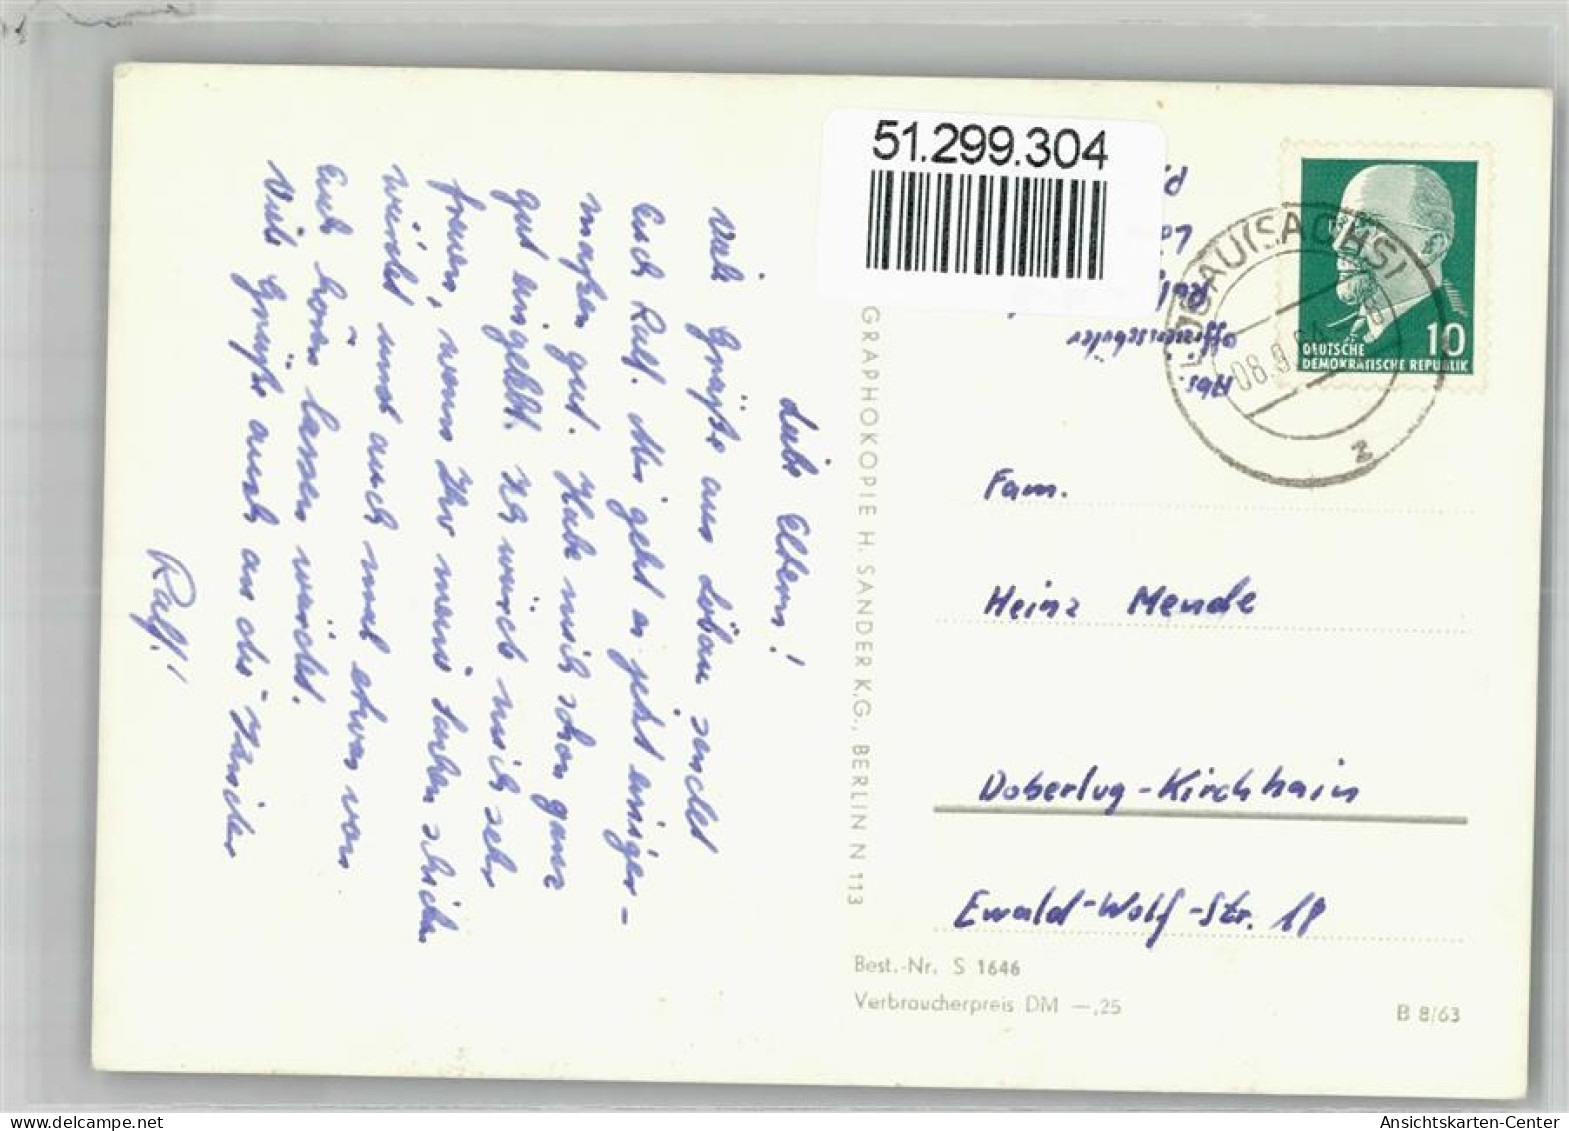 51.299.304
Abs.
Offiziersschüler
LÖBAU (SACHS)
08.9.
2
10
DEUTSCHE
DEMOKRATISCHE REPUBLIK
Liebe Eltern!
Viele Grüße aus Löbau sendet
Euch Ralf. Mir geht es jetzt einiger-
maßen gut. Habe mich schon ganz
gut eingelebt. Ich würde mich sehr
freuen, wenn Ihr meine Sachen schicken
würdet und auch mal etwas von
Euch hören lassen würdet.
Viele Grüße auch an die
Ralf!
GRAPHOKOPIE H. SANDER K.G., BERLIN N 113
Fam.
Heinz Mende
Doberlug-Kirchhain
Ewald-Wolf-Str. 18
Best.-Nr. S 1646
Verbraucherpreis DM —,25
B 8/63
www.delcampe.net
Ansichtskarten-Center